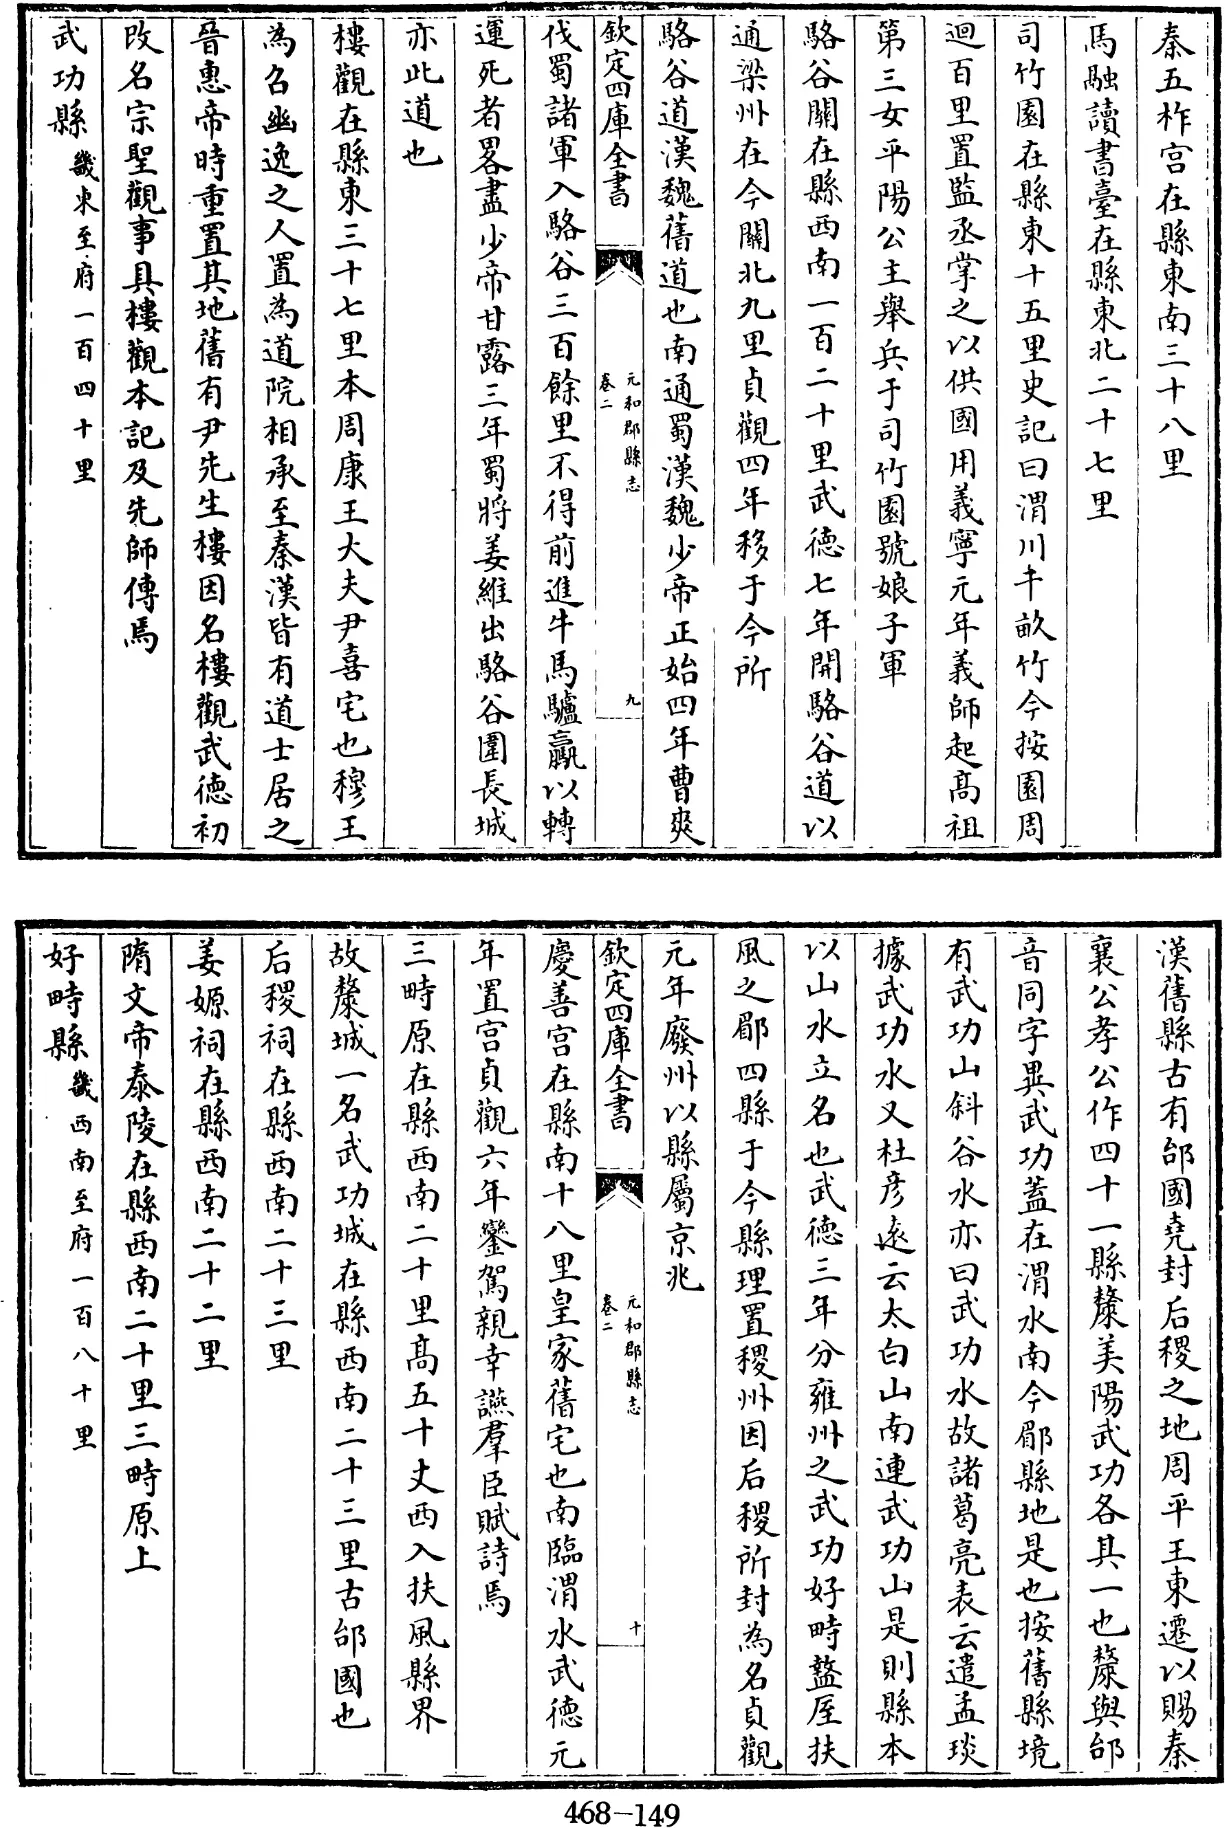 秦五柞宫在縣東南三十八里
馬融讀書臺在縣東北二十七里
司竹園在縣東十五里史記曰渭川千畝竹今按園周
迴百里置監丞掌之以供國用義寧元年義師起髙祖
第三女平陽公主舉兵于司竹園號娘子軍
駱谷關在縣西南一百二十里武徳七年開駱谷道以
通梁州在今關北九里貞觀四年移于今所
駱谷道漢魏舊道也南通蜀漢魏少帝正始四年曹爽
欽定四庫全書
元和郡縣志
卷二
九
伐蜀諸軍入駱谷三百餘里不得前進牛馬驢羸以轉
運死者畧盡少帝甘露三年蜀將姜維出駱谷圍長城
亦此道也
樓觀在縣東三十七里本周康王大夫尹喜宅也穆王
為召幽逸之人置為道院相承至秦漢皆有道士居之
晉惠帝時重置其地舊有尹先生樓因名樓觀武徳初
改名宗聖觀事具樓觀本記及先師傳焉
武功縣 畿東至府一百四十里
漢舊縣古有邰國堯封后稷之地周平王東遷以賜秦
襄公孝公作四十一縣斄美陽武功各其一也斄與邰
音同字異武功蓋在渭水南今郿縣地是也按舊縣境
有武功山斜谷水亦曰武功水故諸葛亮表云遣孟琰
據武功水又杜彦逺云太白山南連武功山是則縣本
以山水立名也武徳三年分雍州之武功好畤盩厔扶
風之郿四縣于今縣理置稷州因后稷所封為名貞觀
元年廢州以縣屬京兆
欽定四庫全書
元和郡縣志
卷二
十
慶善宫在縣南十八里皇家舊宅也南臨渭水武徳元
年置宫貞觀六年鑾駕親幸讌羣臣賦詩焉
三畤原在縣西南二十里髙五十丈西入扶風縣界
故斄城一名武功城在縣西南二十三里古邰國也
后稷祠在縣西南二十三里
姜嫄祠在縣西南二十二里
隋文帝泰陵在縣西南二十里三畤原上
好畤縣 畿西南至府一百八十里
468-149